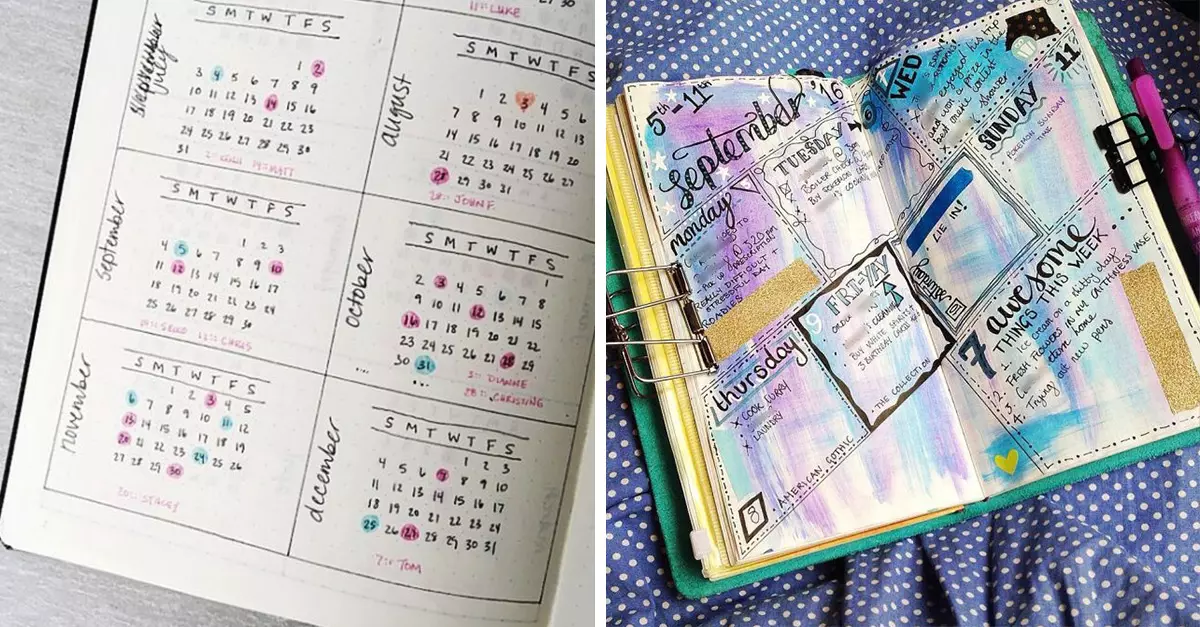 11:: LUKE
july
S M T W T F S
1 2
3 4 5 6 7 8 9
10 11 12 13 14 15 16
17 18 19 20 21 22 23
24 25 26 27 28 29 30
31
14:: MATT
august
S M T W T F S
1 2 3 4 5 6
7 8 9 10 11 12 13
14 15 16 17 18 19 20
21 22 23 24 25 26 27
28 29 30 31
28:: JOHN F.
September
S M T W T F S
1 2 3
4 5 6 7 8 9 10
11 12 13 14 15 16 17
18 19 20 21 22 23 24
25 26 27 28 29 30
12:: CHRIS
october
S M T W T F S
1
2 3 4 5 6 7 8
9 10 11 12 13 14 15
16 17 18 19 20 21 22
23 24 25 26 27 28 29
30 31
3:: DIANNE
28:: CHRISTING
november
S M T W T F S
1 2 3 4 5
6 7 8 9 10 11 12
13 14 15 16 17 18 19
20 21 22 23 24 25 26
27 28 29 30
20:: STACEY
december
S M T W T F S
1 2 3
4 5 6 7 8 9 10
11 12 13 14 15 16 17
18 19 20 21 22 23 24
25 26 27 28 29 30 31
7:: TOM
5th - 11th
September '16
monday
PRESCRIPTION
REALLY DIFFICULT +
STRESSFUL DAY
ROADIES
TUESDAY
BOILER CHECK @
WED
enjoyed his trip
and won a prize in the
best contest
shower
SUNDAY
11
POKEMON SUNDAY
TIME
LIE IN!
10
FRI-YAY
9
ORDER
CLEANING
BUY WHITE SPIRITS
3 BIRTHDAY CARDS
- THE COLLECTION
thursday
X COOK CURRY
X LAUNDRY
AMERICAN GOTHIC
8
7 awesome
THINGS THIS WEEK...
1. Ice cream on a shitty day
2. FRESH FLOWERS IN MY CAITHNESS VASE
3. home
4. Trying out new pens